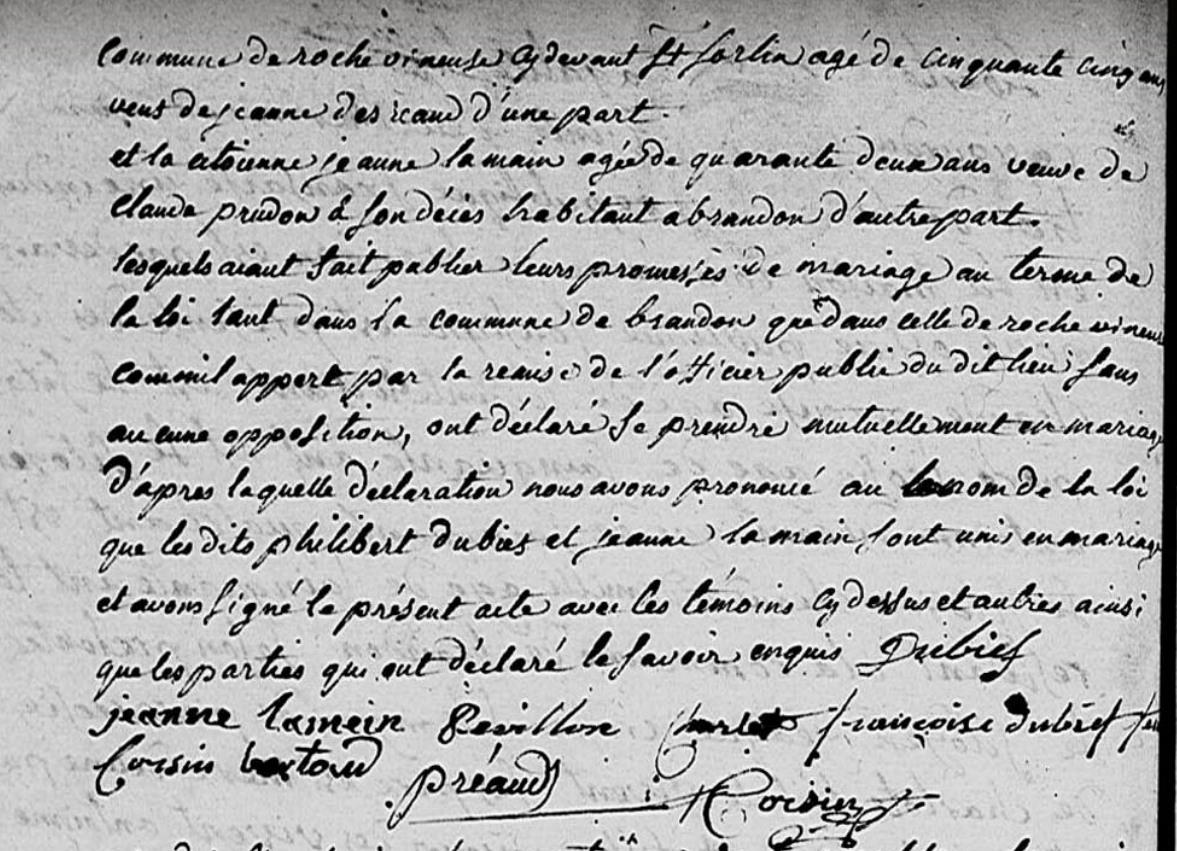 commune de roche vineuse cy devant St Sorlin agé de cinquante cinq ans
veuf de jeanne d'une part.
et la citoienne jeanne lamain agée de quarante deux ans veuve de
claude prudon à son décès habitant a brandon d'autre part.
lesquels aiant fait publier leurs promesses de mariage au terme de
la loi tant dans la commune de brandon que dans celle de roche vineuse
comm'il appert par la remise de l'officier public du dit lieu sans
aucune opposition, ont déclaré se prendre mutuellement en mariage
d'apres laquelle déclaration nous avons prononcé au nom de la loi
que les dits philibert dubief et jeanne lamain, sont unis en mariage
et avons signé le présent acte avec les témoins cy dessus et autres ainsi
que les parties qui ont déclaré le savoir enquis Dubief
jeanne lamein françoise dubief
préaud